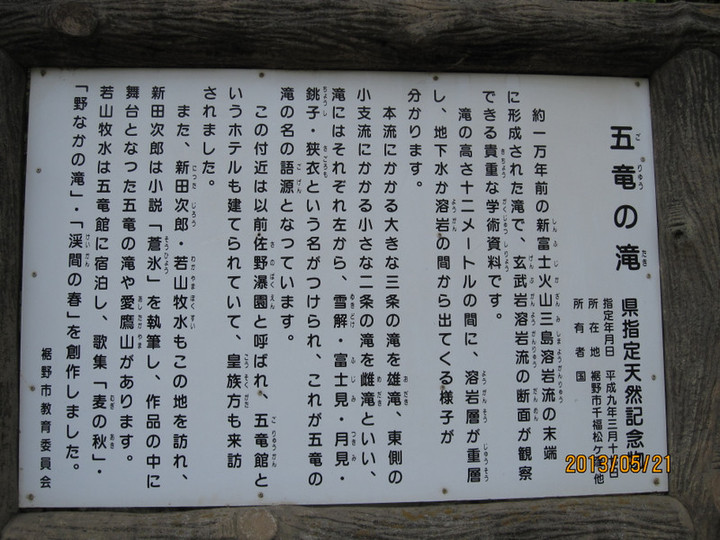 五竜の滝 県指定天然記念物
指定年月日 平成九年三月十日
所在地 裾野市千福松ヶ他
所有者 国
約一万年前の新富士火山三島溶岩流の末端
に形成された滝で、玄武岩溶岩流の断面が観察
できる貴重な学術資料です。
滝の高さ十二メートルの間に、溶岩層が重層
し、地下水が溶岩の間から出てくる様子が
分かります。
本流にかかる大きな三条の滝を雄滝、東側の
小支流にかかる小さな二条の滝を雌滝といい、
滝にはそれぞれ左から、雪解・富士見・月見・
銚子・狭衣という名がつけられ、これが五竜の
滝の名の語源となっています。
この付近は以前佐野瀑園と呼ばれ、五竜館と
いうホテルも建てられていて、皇族方も来訪
されました。
また、新田次郎・若山牧水もこの地を訪れ、
新田次郎は小説「蒼氷」を執筆し、作品の中に
舞台となった五竜の滝や愛鷹山があります。
若山牧水は五竜館に宿泊し、歌集「麦の秋」・
「野なかの滝」・「渓間の春」を創作しました。
裾野市教育委員会
2013/05/21